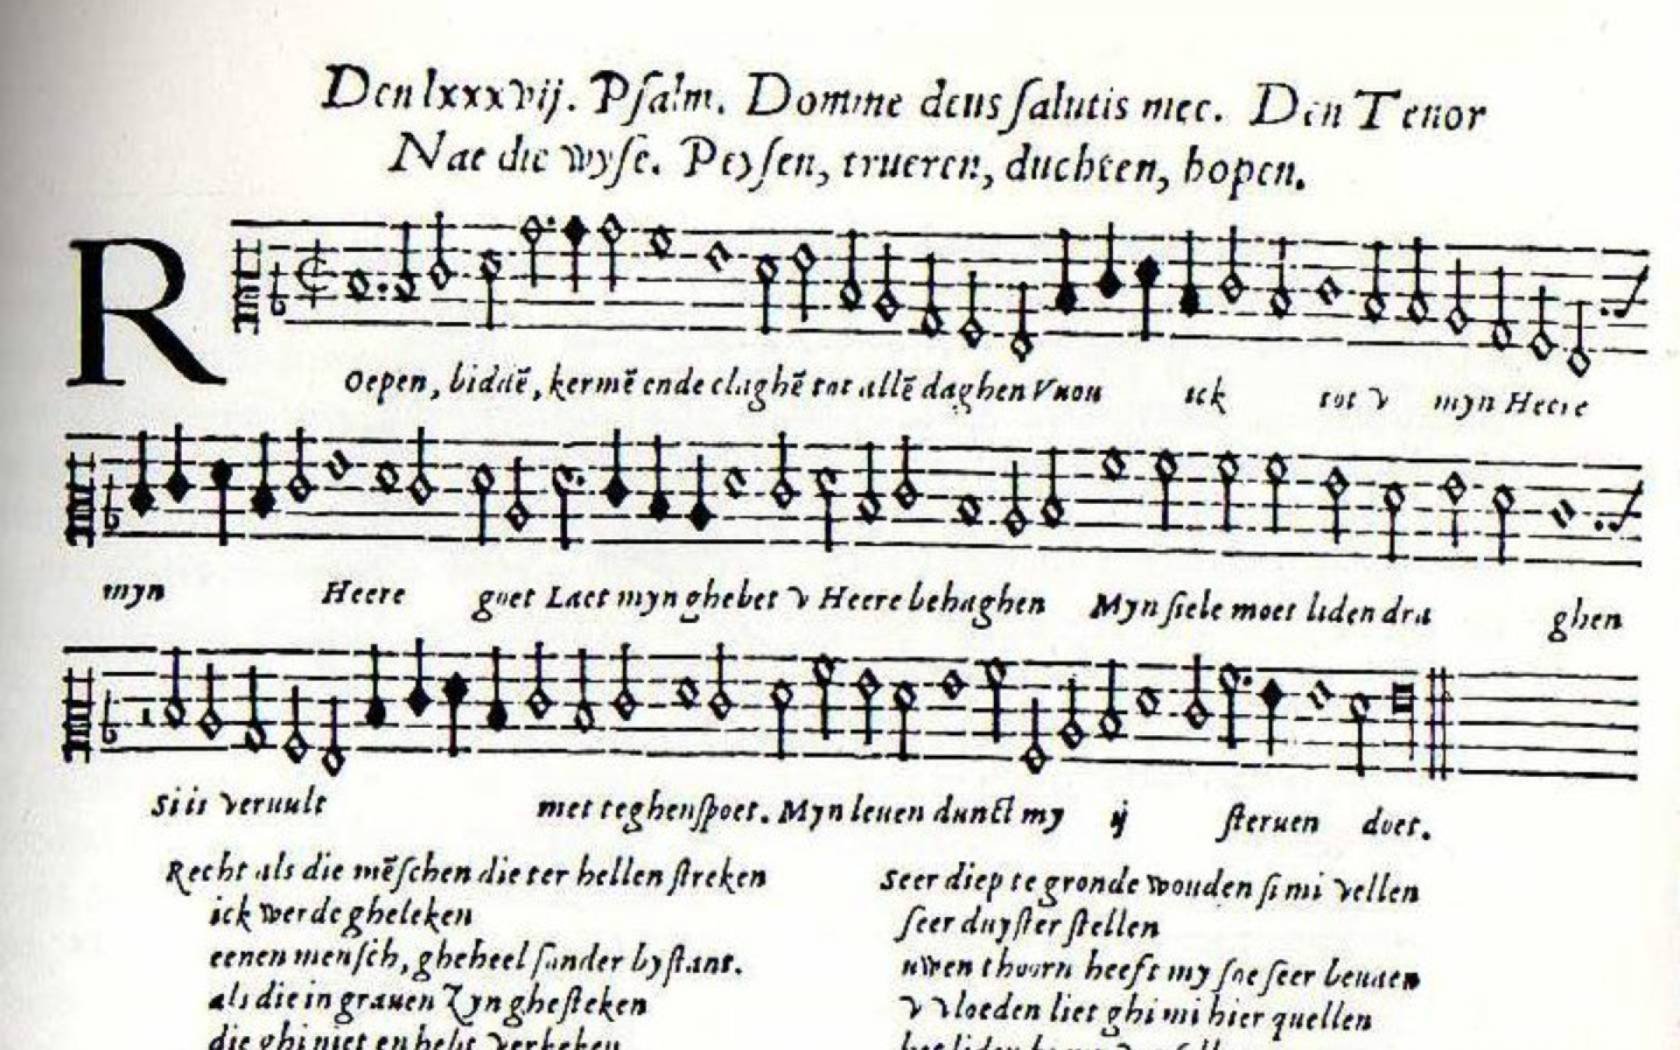 Den lxxxvij. Psalm. Domine deus salutis mee. Den Tenor
Nae die wyse. Peysen, trueren, duchten, hopen.
Roepen, biddē, kermē ende claghē tot allē daghen V nou ick tot v myn Heere
myn Heere goet Laet myn ghebet v Heere behaghen Myn siele moet liden dra ghen
Si is veruult met teghenspoet. Myn leuen dunct my ij steruen doet.
Recht als die mēschen die ter hellen streken
ick werde gheleken
eenen mensch, gheheel sonder bystant.
als die in grauen Zyn ghesteken
die ghi niet en hebt
Seer diep te gronde wouden si mi vellen
seer duyster stellen
uwen thoorn heeft my soe seer beuaen
v vloeden liet ghi mi hier quellen